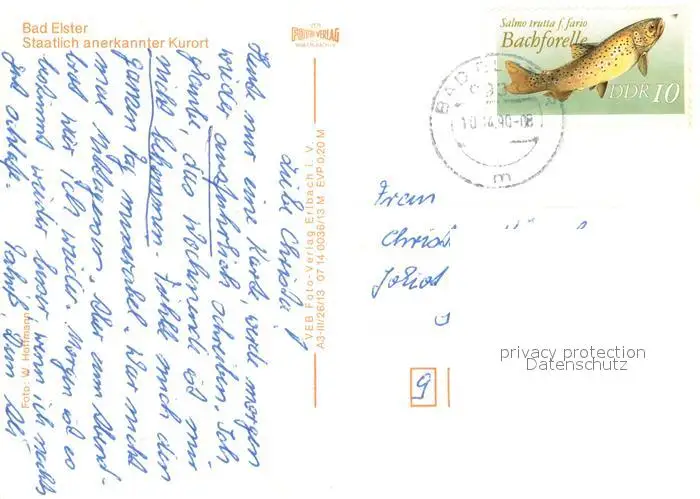 Bad Elster
Staatlich anerkannter Kurort
VEB
FOTO-VERLAG
ERLBACH i.V.
Salmo trutta f. fario
Bachforelle
DDR 10
BAD EL
10.-4.90-08
m
Liebe Christa!
Heute nur eine Karte, werde morgen
wieder ausführlich schreiben. Ich
glaube, das Wochenende ist mir
nicht bekommen. Fühle mich den
ganzen Tag miserabel. War nicht
mal Aber am Abend
lese ich wieder. Morgen ist es
bestimmt wieder besser, wenn ich nachts
gut schlafe.
Dein
Foto: W. Hoffmann
V.E.B. Foto-Verlag Erlbach i. V.
A3-III/26/13 07 14 0036/13 M EVP 0,20 M
Frau
Christ
9
privacy protection
Datenschutz